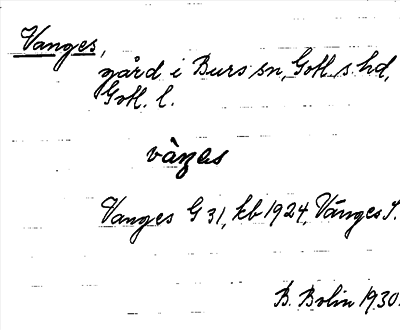 Vanges,
gård i Burs sn, Gotl. s. hd,
Gotl. l.
vàŋəs
Vanges G 31, kb 1924, Vänges S.
B. Bolin 1930.